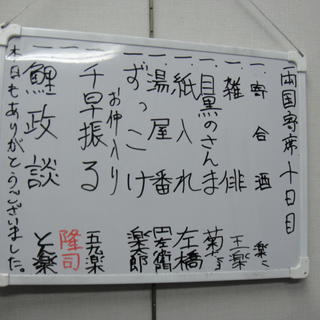 両国寄席 十日目
一、寄合酒 楽
一、雑俳 王楽
一、目黒のさんま 菊
一、紙入れ 左橋
一、湯屋番
一、ずっこけ 楽郎
お仲入り
一、千早振る 五九楽
一、 隆司
一、鯉政談 楽
本日もありがとうございました。